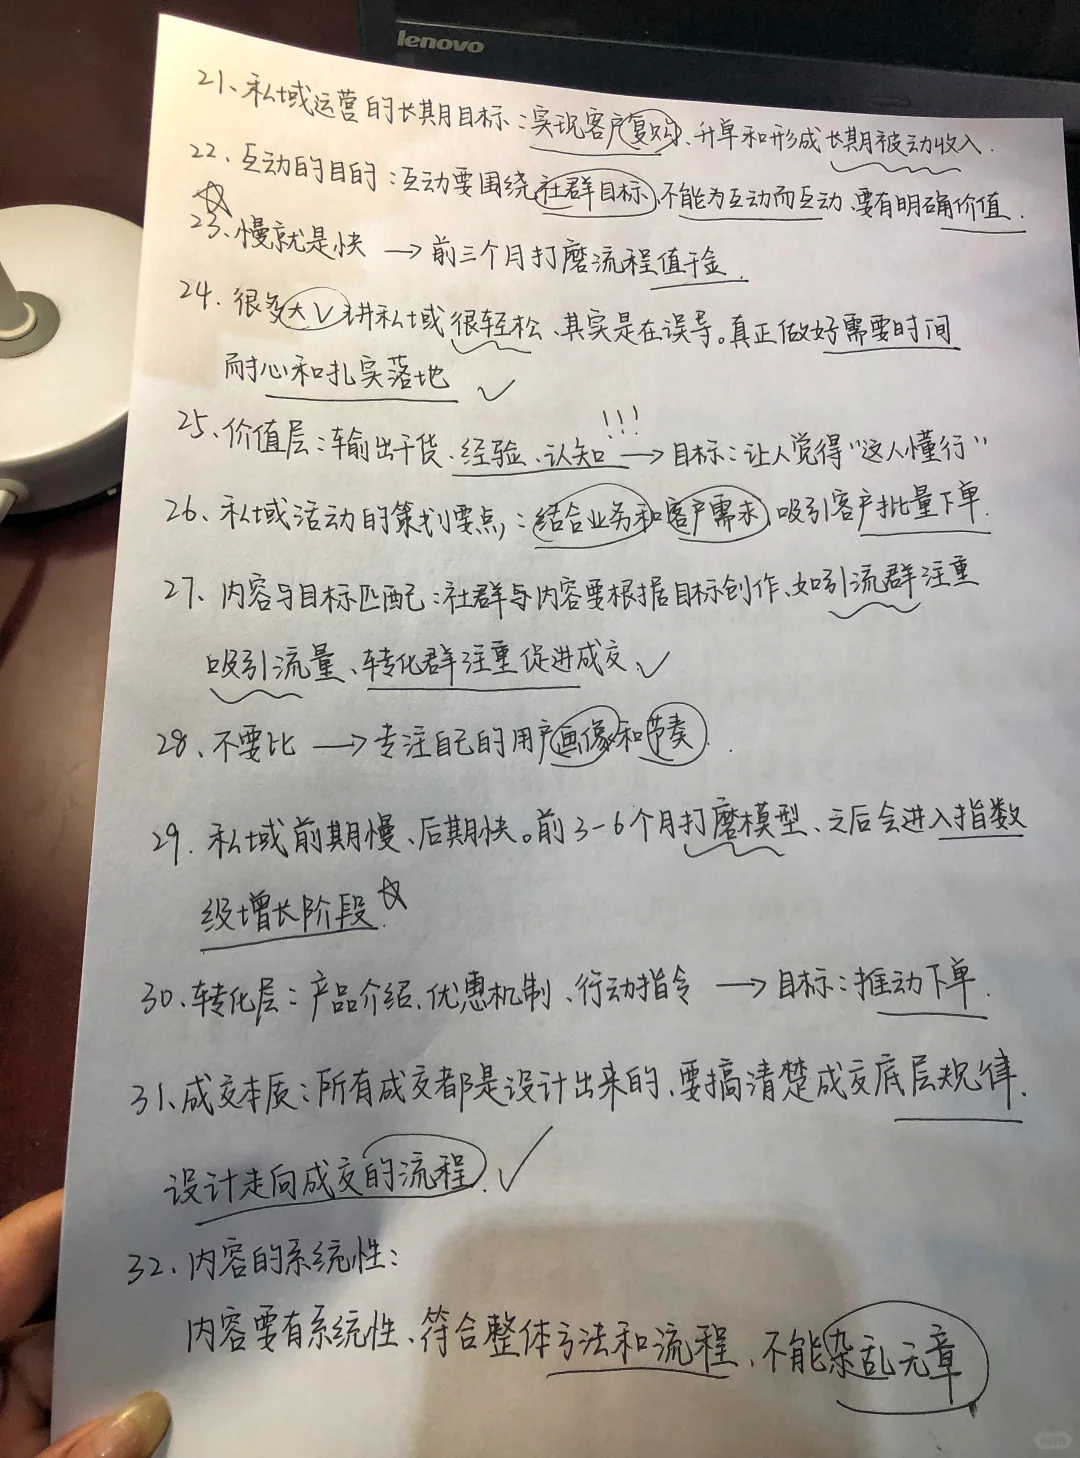 lenovo
21、私域运营的长期目标：实现客户复购、升单和形成长期被动收入.
22、互动的目的：互动要围绕社群目标,不能为互动而互动、要有明确价值.
23、慢就是快 → 前三个月打磨流程值千金.
24、很多大V讲私域很轻松、其实是在误导。真正做好需要时间
耐心和扎实落地 ✓
25、价值层：输出干货、经验、认知!!! → 目标：让人觉得"这人懂行"
26、私域活动的策划要点：结合业务和客户需求,吸引客户批量下单.
27、内容与目标匹配：社群与内容要根据目标创作、如引流群注重
吸引流量、转化群注重促进成交、✓
28、不要比 → 专注自己的用户画像和节奏.
29. 私域前期慢、后期快。前3-6个月打磨模型、之后会进入指数
级增长阶段.☆
30、转化层：产品介绍、优惠机制、行动指令 → 目标：推动下单.
31、成交本质：所有成交都是设计出来的、要搞清楚成交底层规律.
设计走向成交的流程.✓
32、内容的系统性：
内容要有系统性、符合整体方法和流程、不能杂乱无章
小红书